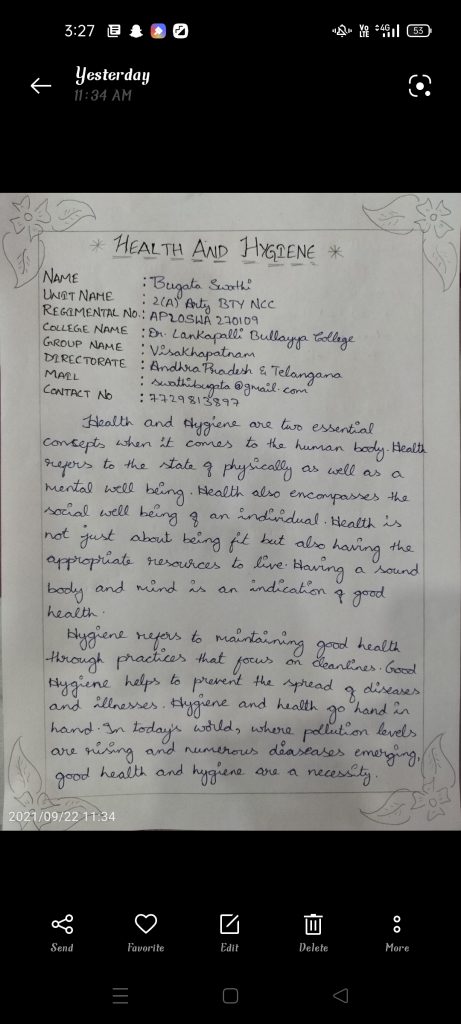 3:27
Vo LTE 4G 53
Yesterday
11:34 AM
* HEALTH AND HYGIENE *
NAME : Bugata Swathi
UNIT NAME : 2(A) Arty BTY NCC
REGIMENTAL NO. : AP20SWA 270109
COLLEGE NAME : Dr. Lankapalli Bullayya College
GROUP NAME : Visakhapatnam
DIRECTORATE : Andhra Pradesh & Telangana
MAIL : swathibugata@gmail.com
CONTACT NO : 7729813897
Health and Hygiene are two essential
concepts when it comes to the human body. Health
refers to the state of physically as well as a
mental well being. Health also encompasses the
social well being of an individual. Health is
not just about being fit but also having the
appropriate resources to live. Having a sound
body and mind is an indication of good
health.
Hygiene refers to maintaining good health
through practices that focus on cleanlines. Good
Hygiene helps to prevent the spread of diseases
and illnesses. Hygiene and health go hand in
hand. In today's world, where pollution levels
are rising and numerous diseases emerging,
good health and hygiene are a necessity.
2021/09/22 11:34
Send Favorite Edit Delete More